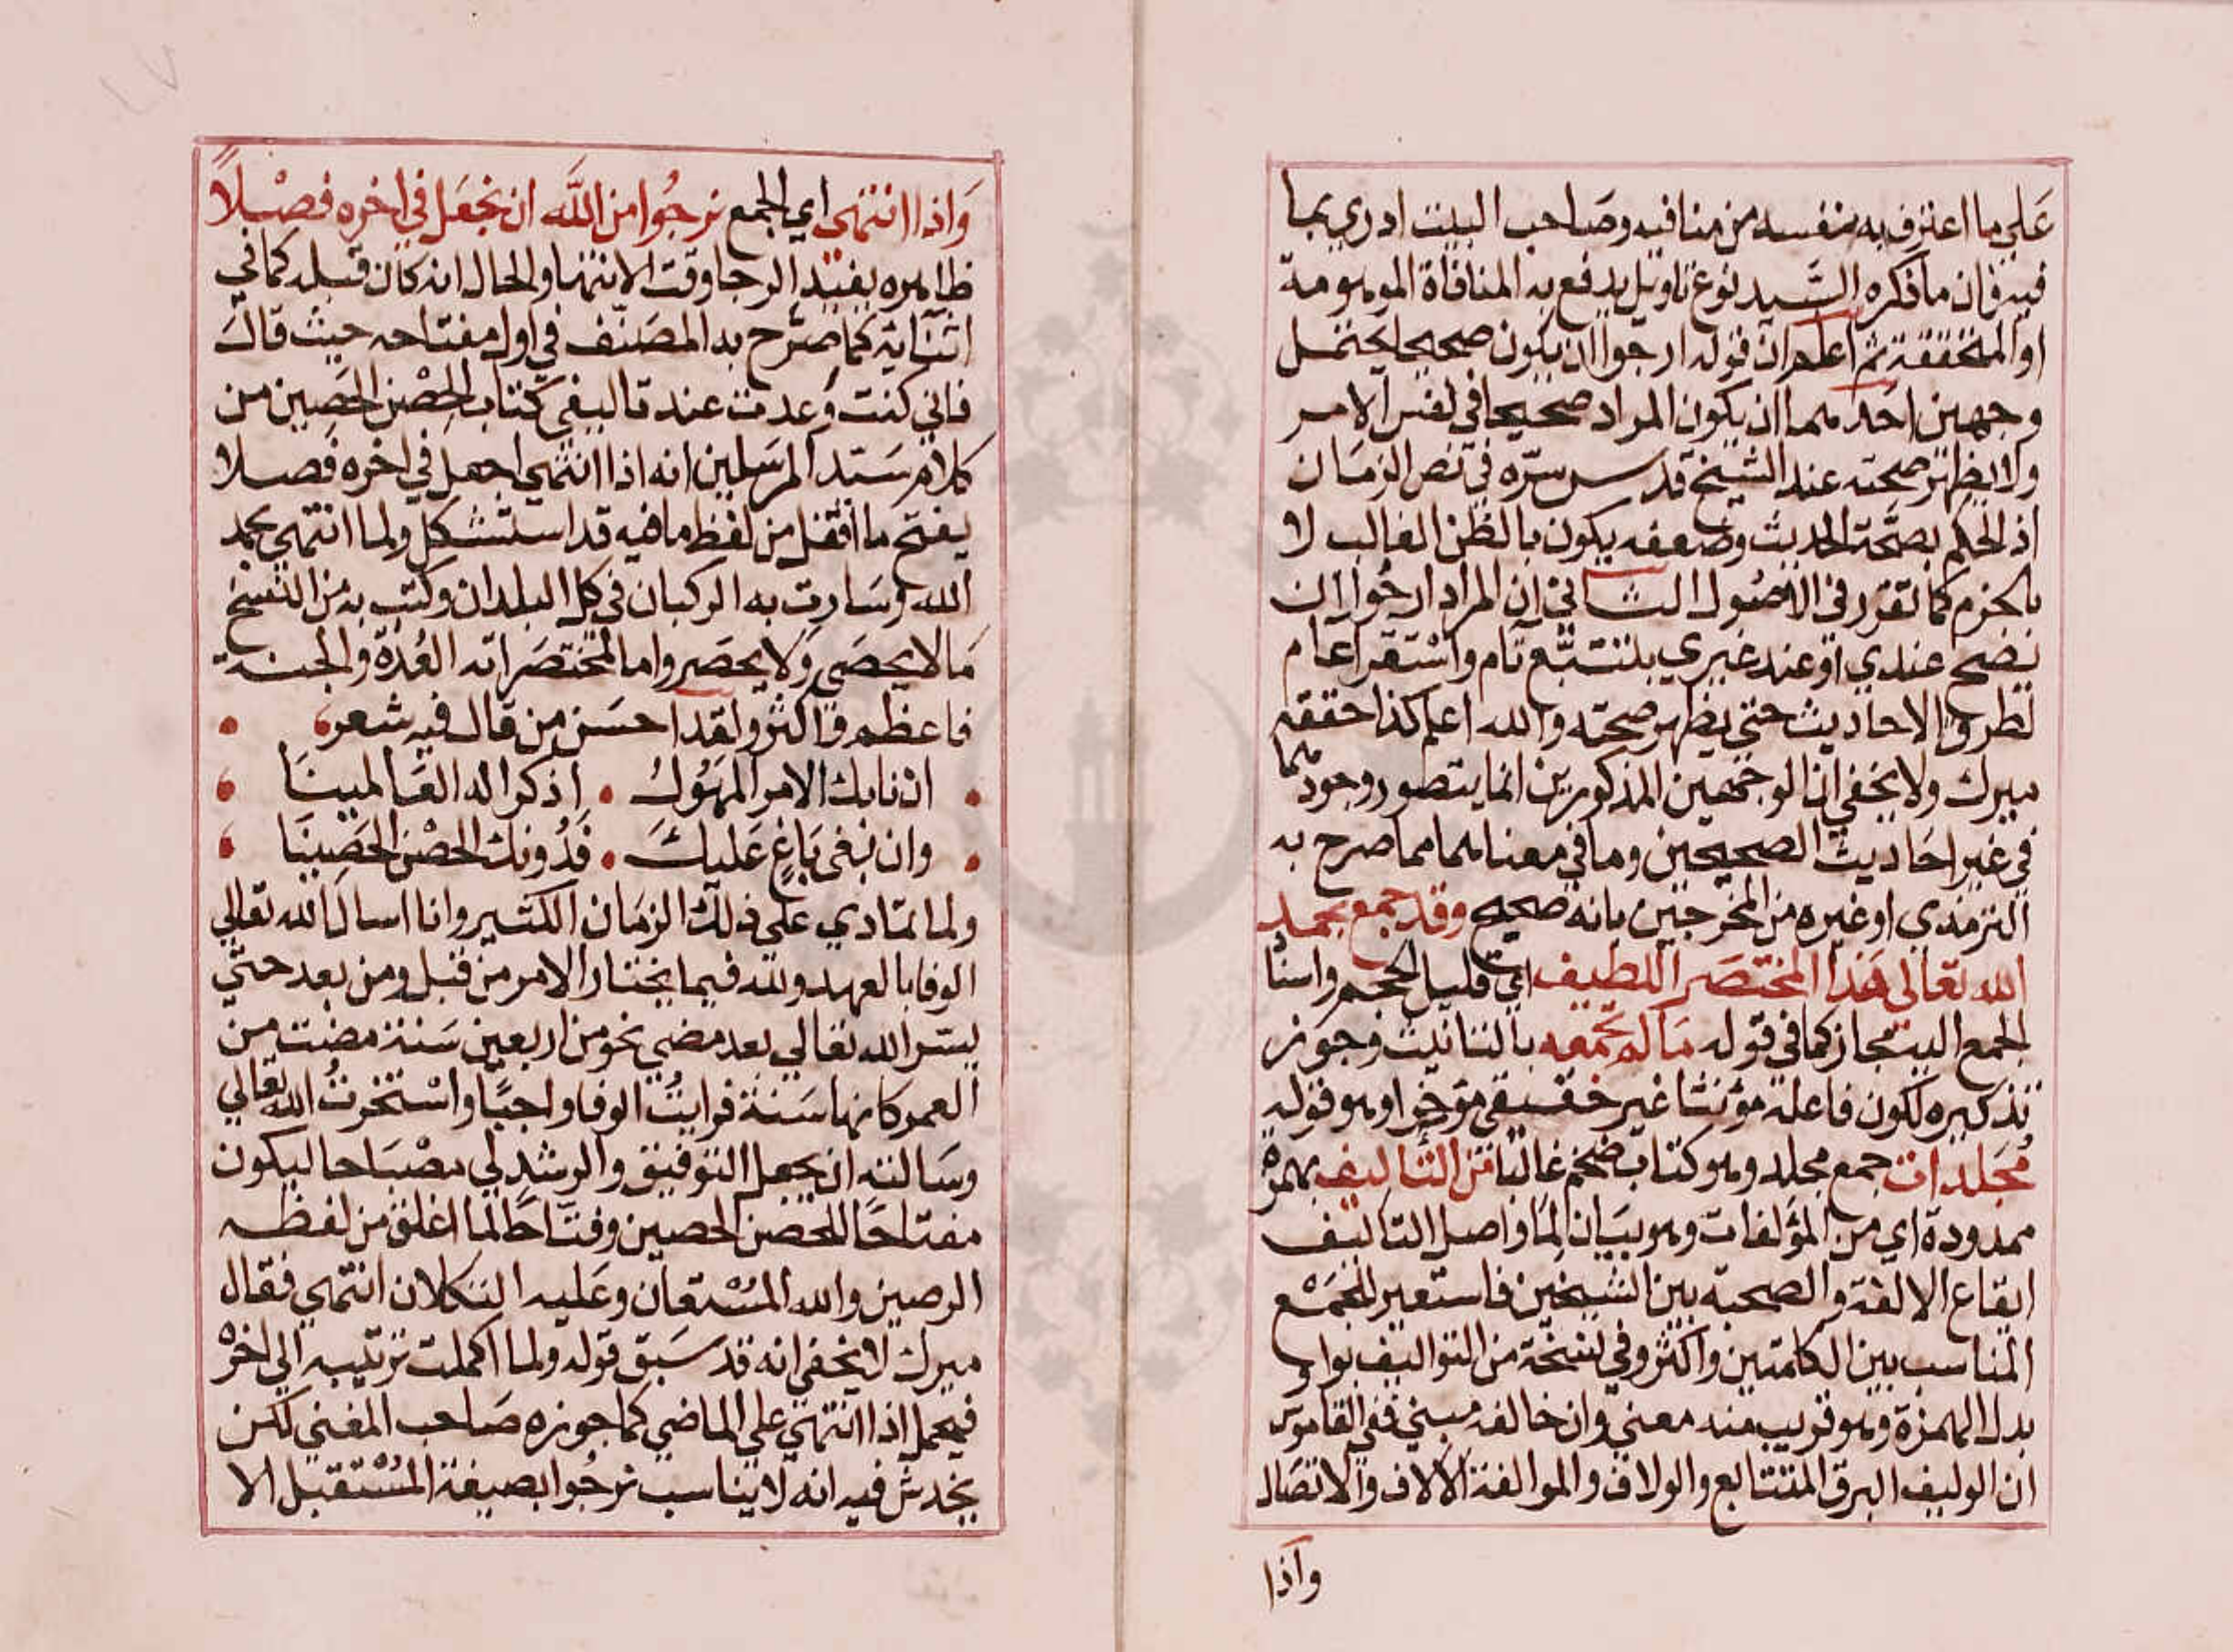 علي ما اعترف به بنفسه من منافيه وصاحب البيت ادري بما
فيه فان ما ذكره السيد نوع تاويل يدفع به المنافاة الموهومة
او المتحققة ثم اعلم ان قوله ارجوا ان يكون صحيحا يحتمل
وجهين احدهما ان يكون المراد صحيحا في نفس الامر
ولا يظهر صحته عند الشيخ قدس سره في نص الزمان
اذ الحكم بصحة الحديث وضعفه يكون بالظن الغالب لا
بالجزم كما تقرر في الاصول الثاني ان المراد ارجوا ان
يصح عندي او عند غيري بتتبع تام واستقرا عام
لطرق الاحاديث حتي يظهر صحته والله اعلم كذا حققه
ميرك ولا يخفي ان الوجهين المذكورين انما يتصور وجودهما
في غير احاديث الصحيحين وما في معناهما مما صرح به
الترمذي او غيره من المخرجين بانه صحيح وقد جمع بحمد
الله تعالى هذا المختصر اللطيف اي قليل الحجم واسناد
الجمع اليه مجاز كما في قوله ما لم تجمعه بالتانيث وجوز
تذكيره لكون فاعله مؤنثا غير حقيقي مؤخرا وهو قوله
مُجلدات جمع مجلد وهو كتاب ضخم غالبا من التآليف بهمزة
ممدودة اي من المؤلفات وهو بيان لما واصل التاليف
ايقاع الالفة والصحبة بين الشيخين فاستعير للجمع
المناسب بين الكلمتين واكثر وفي نسخة من التواليف بواو
بدل الهمزة وهو قريب منه معني وان خالفه مبني ففي القاموس
ان الوليف البرق المتتابع والولاف والموالفة الالاف والاتصال
واذا
وَاذا انتهي اي الجمع نرجُوا من اللَّه ان نجعَل في اخره فصْلاً
ظاهره يفيد الرجا وقت الانتها والحال انه كان قبله كما في
اثنائه كما صرح به المصنف في اول مفتاحه حيث قال
فاني كنت وعدت عند تاليفي كتاب الحِصْن الحَصِين من
كلام سيد المرسلين انه اذا انتهي اجعل في اخره فصلا
يفتح ما اقفل من لفظ ما فيه قد استشكل ولما انتهي بحمد
الله وسارت به الركبان في كل البلدان وكتب به من النسخ
ما لا يحصي ولا يحصر واما المختصر انه العُدة والجنة
فاعظم واكثر ولقد احسن من قال فيه شعر
ان نابك الامر المهُولُ اذكر اله العالمينا
وان بغى بَاغٍ عَليك فَدُونك الحصْن الحَصِينَا
ولما تمادي علي ذلك الزمان الكثير وانا اسال الله تعالي
الوفا بالعهد ولله فيما يختار الامر من قبل ومن بعد حتي
يسر الله تعالي بعد مضي نحو من اربعين سنة مضت من
العمر كانها سَنة فرايتُ الوفا واجبًا واسْتخرتُ الله تعالي
وسالته ان يجعل التوفيق والرشد لي مصباحا ليكون
مفتاحًا للحصن الحصين وفتاحًا لما اغلق من لفظه
الرصين والله المسْتعان وعَليه التكلان انتهي فقال
ميرك لا يخفي انه قد سَبق قوله ولما اكملت ترتيبه الي اخرْ
فيحمل اذا انتهي علي الماضي كما جوزه صاحب المغني لكن
يخدش فيه انه لا يناسب نرجُوا بصيغة المسْتقبل الا